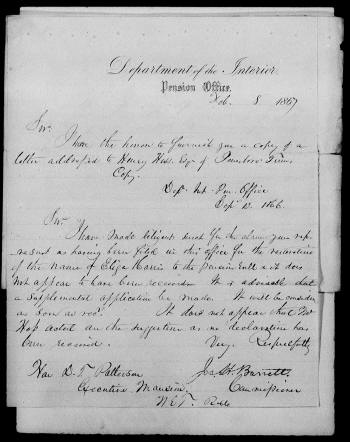 Department of the Interior,
Pension Office,
Feb. 8 1867
Sir,
I have the honor to furnish you a copy of a
letter addressed to Henry Hess Esq of Tenn
Copy.
Dep't Int. Pen. Office
Sept 12. 1866.
Sir
I have made diligent search for the claim you rep-
resent as having been filed in this office for the restoration
of the name of Eliza Harris to the pension roll & it does
not appear to have been received. It is advisable that
a supplemental application be made. It will be considered
as soon as rec'd. It does not appear that Mr
acted on the suggestion as no declaration has
been received. Very Respectfully
Hon D. T. Patterson Jos. H. Barrett
Executive Mansion Commissioner